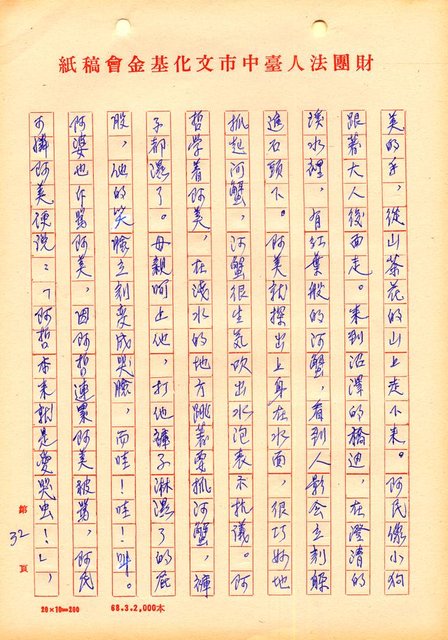 財團法人臺中市文化基金會稿紙
美的手,從山茶花的山上走下來。阿民像小狗
跟著大人後面走。來到沼澤的橋迪,在澄清的
溪水裡,有紅葉般的河蟹,看到人影会立刻躲
進石頭下。阿美就探出上身在水面,很巧妙地
抓起河蟹,河蟹很生気吹出水泡表示抗議。阿
哲学着阿美,在浅水的地方跳著要抓河蟹,褲
子都濕了。母親呵止他,打他褲子淋濕了的屁
股,他的笑臉立刻変成哭臉,而哇!哇!叫。
阿婆也斥罵阿美,因阿哲連累阿美被罵,阿民
可憐阿美便說:「阿哲本來就是愛哭虫!」,
第32頁
20×10=200
68.3.2,000本